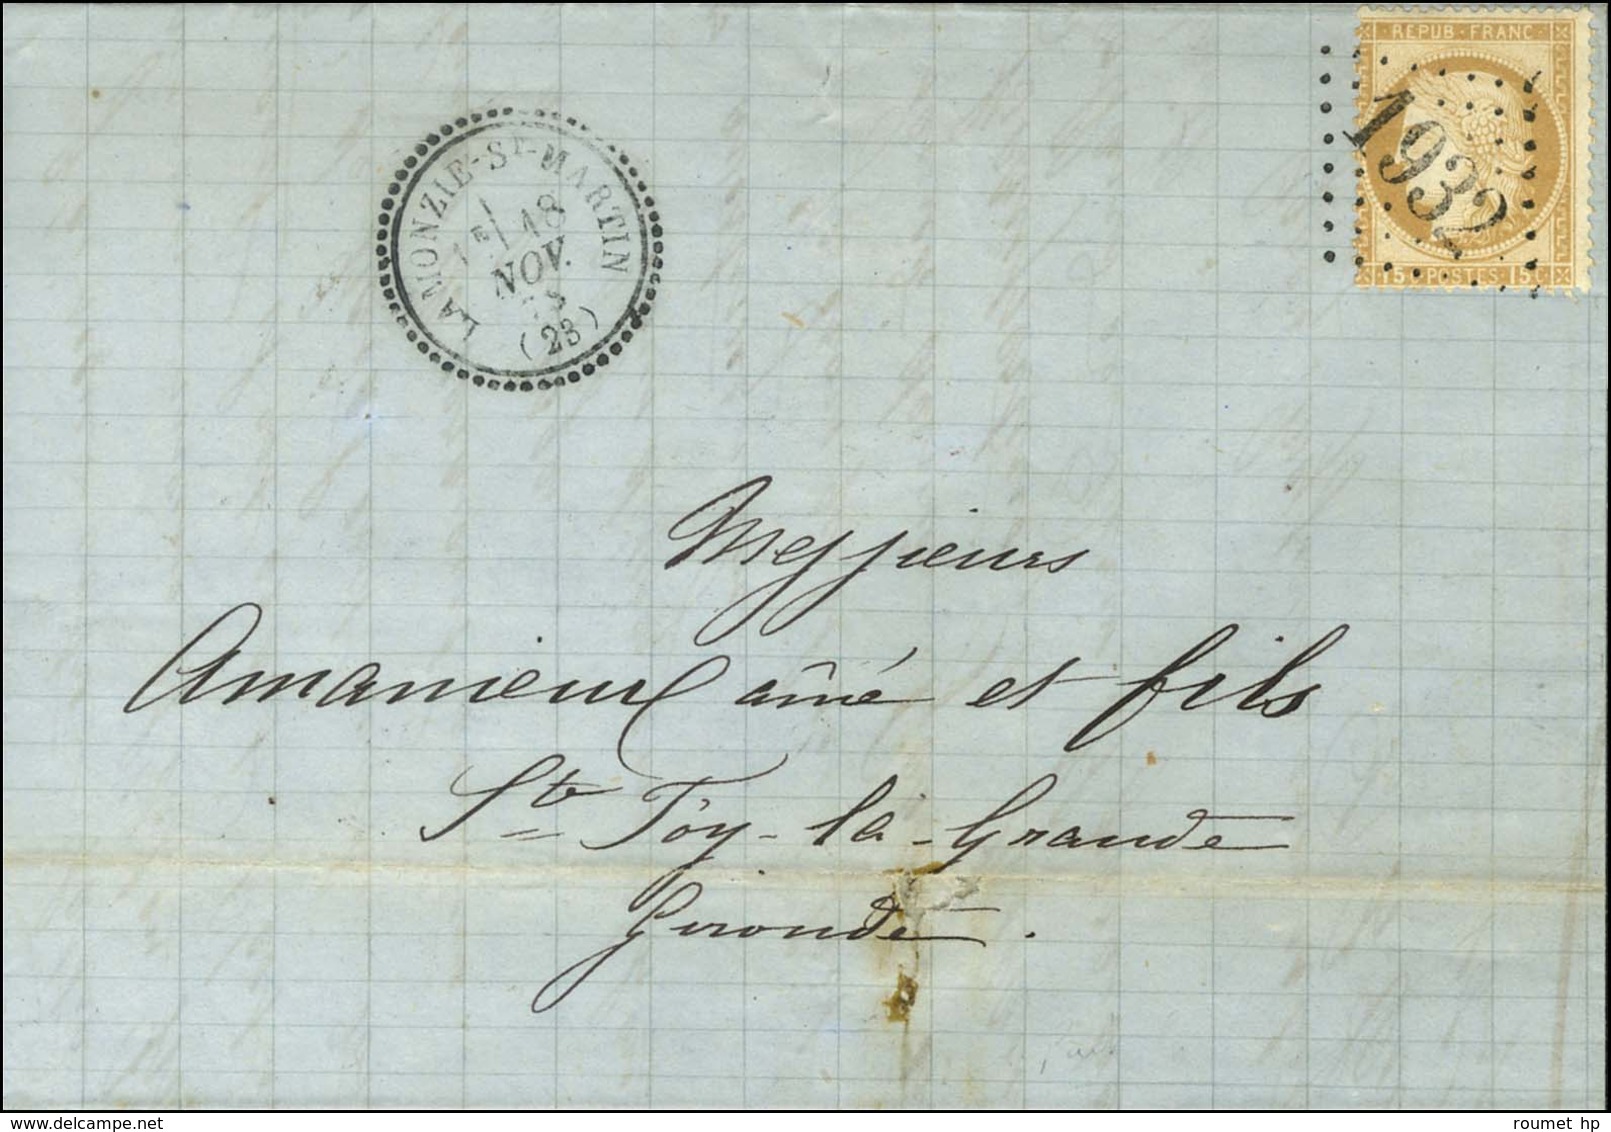 REPUB·FRANC·
1932
15 C POSTES 15 C
LAMONZIE-ST-MARTIN
1E 18
NOV.
(23)
Messieurs
Amanieux aîné et fils
Ste Foy-la-Grande
Gironde.
roumet hp